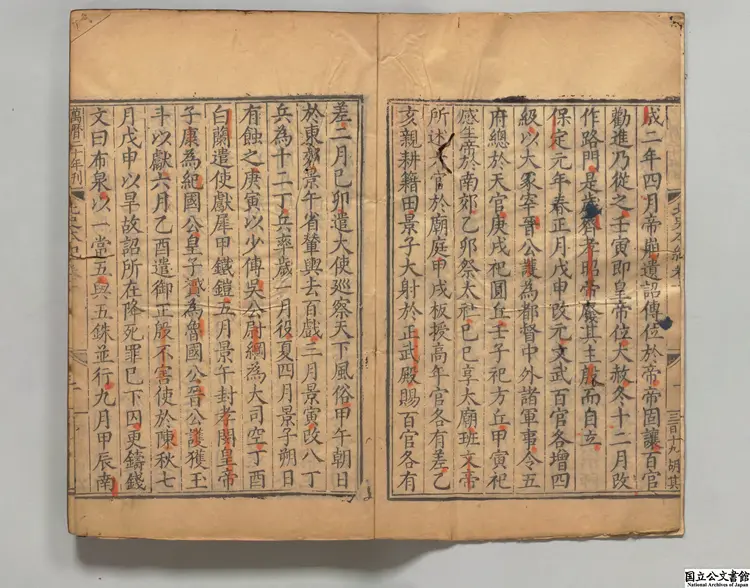 三百十九胡其
成二年四月帝崩遺詔傳位於帝帝固讓百官
勸進乃從之壬寅即皇帝位大赦冬十二月改
作路門是歲齊孝昭帝廢其主殷而自立
保定元年春正月戊申改元文武百官各增四
級以大冢宰晉公護為都督中外諸軍事令五
府總於天官庚戌祀圓丘壬子祀方丘甲寅祀
感生帝於南郊乙卯祭太社己巳享太廟班文帝
所述六官於廟庭甲戌板授高年官各有差乙
亥親耕籍田景子大射於正武殿賜百官各有
差二月己卯遣大使巡察天下風俗甲午朝日
於東郊景午省輦輿去百戲三月景寅改八丁
兵為十二丁兵率歲一月役夏四月景子朔日
有蝕之庚寅以少傅吳公尉綱為大司空丁酉
白蘭遣使獻犀甲鐵鎧五月景午封孝閔皇帝
子康為紀國公皇子贇為魯國公晉公護獲玉
斗以獻六月乙酉遣御正殷不害使於陳秋七
月戊申以旱故詔所在降死罪已下囚更鑄錢
文曰布泉以一當五與五銖並行九月甲辰南
萬曆二十年刊
国立公文書館
National Archives of Japan